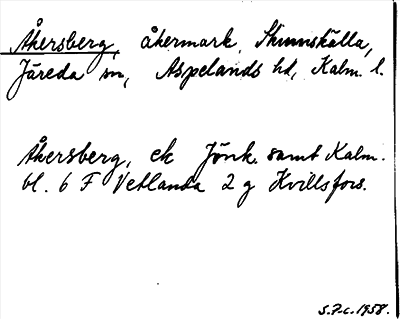 Åkersberg, åkermark, Skinnskälla,
Järeda sn, Aspelands hd, Kalm. l.
Åkersberg, ek Jönk. samt Kalm.
bl. 6 F Vetlanda 2 g Kvillsfors.
S.F.c. 1958.